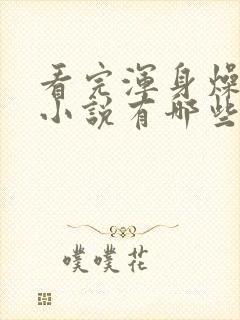 看完渾身燥
小說有哪些
噗噗花